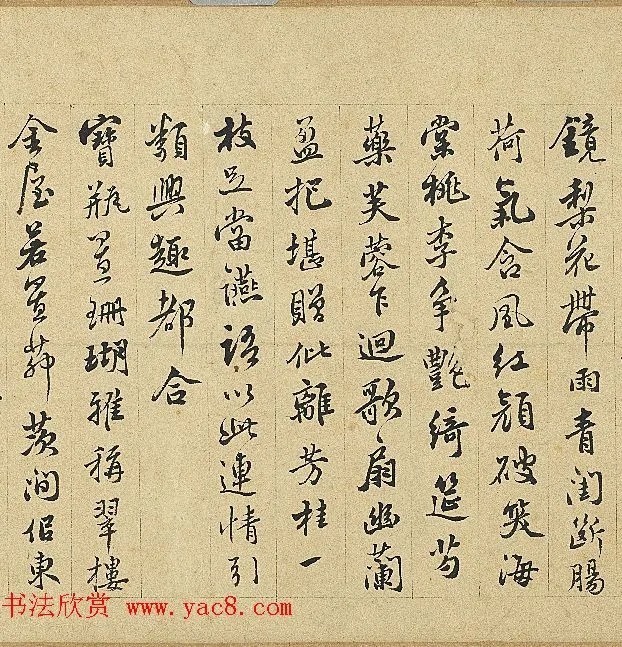 鏡梨花帶雨青閨斷腸
荷氣含風紅顔破笑海
棠桃李爭艷綺筵芍
藥芙蓉乍迴歌扇幽蘭
盈把堪贈仳離芳桂一
枝足當讌語以此連情引
類興趣都合
寶瓶置珊瑚雅稱翠樓
金屋若置茆茨澗侶東
书法欣赏 www.yac8.com